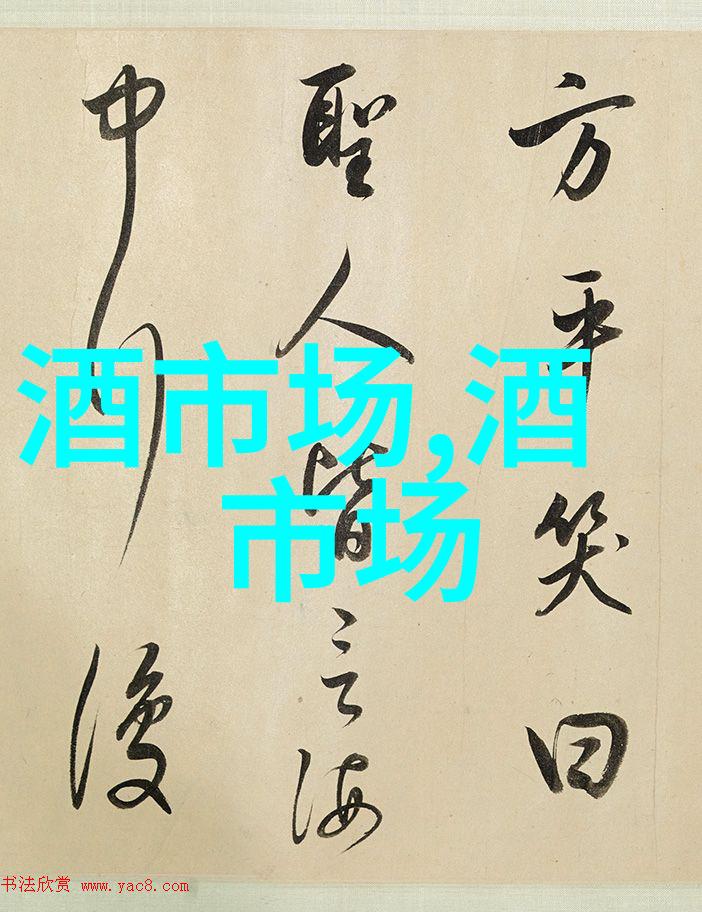 方平笑曰
聖人皆言海
中行復
酒市场,酒
市场
书法欣赏 www.yac8.com